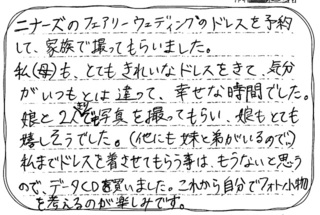 ニナーズのフェアリーウェディングのドレスを予約
して、家族で撮ってもらいました。
私(母)も、とてもきれいなドレスをきて、気分
がいつもとは違って、幸せな時間でした。
娘と2人でも写真を撮ってもらい、娘もとても
嬉しそうでした。(他にも妹と弟がいるので。)
私までドレスを着させてもらう事は、もうないと思う
ので、データCDを買いました。これから自分でフォト小物
を考えるのが楽しみです。